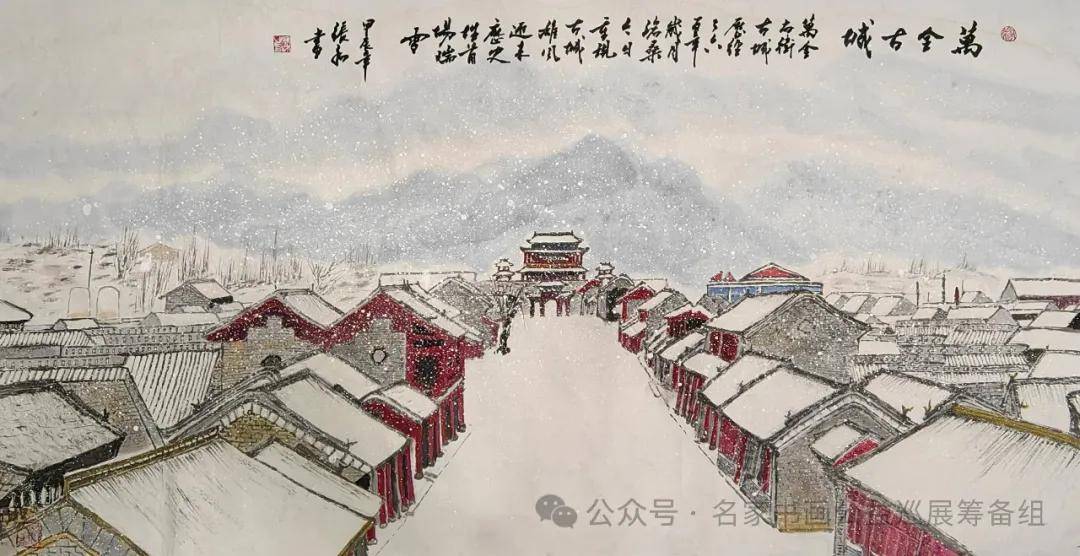 萬全古城
萬全
右衛
古城
歷經
百年
歲月
滄桑
今日
重現
古城
雄風
迎来
歷史
性首
場瑞
雪
甲辰年
張和
書
公众号 · 名家书画公益巡展筹备组